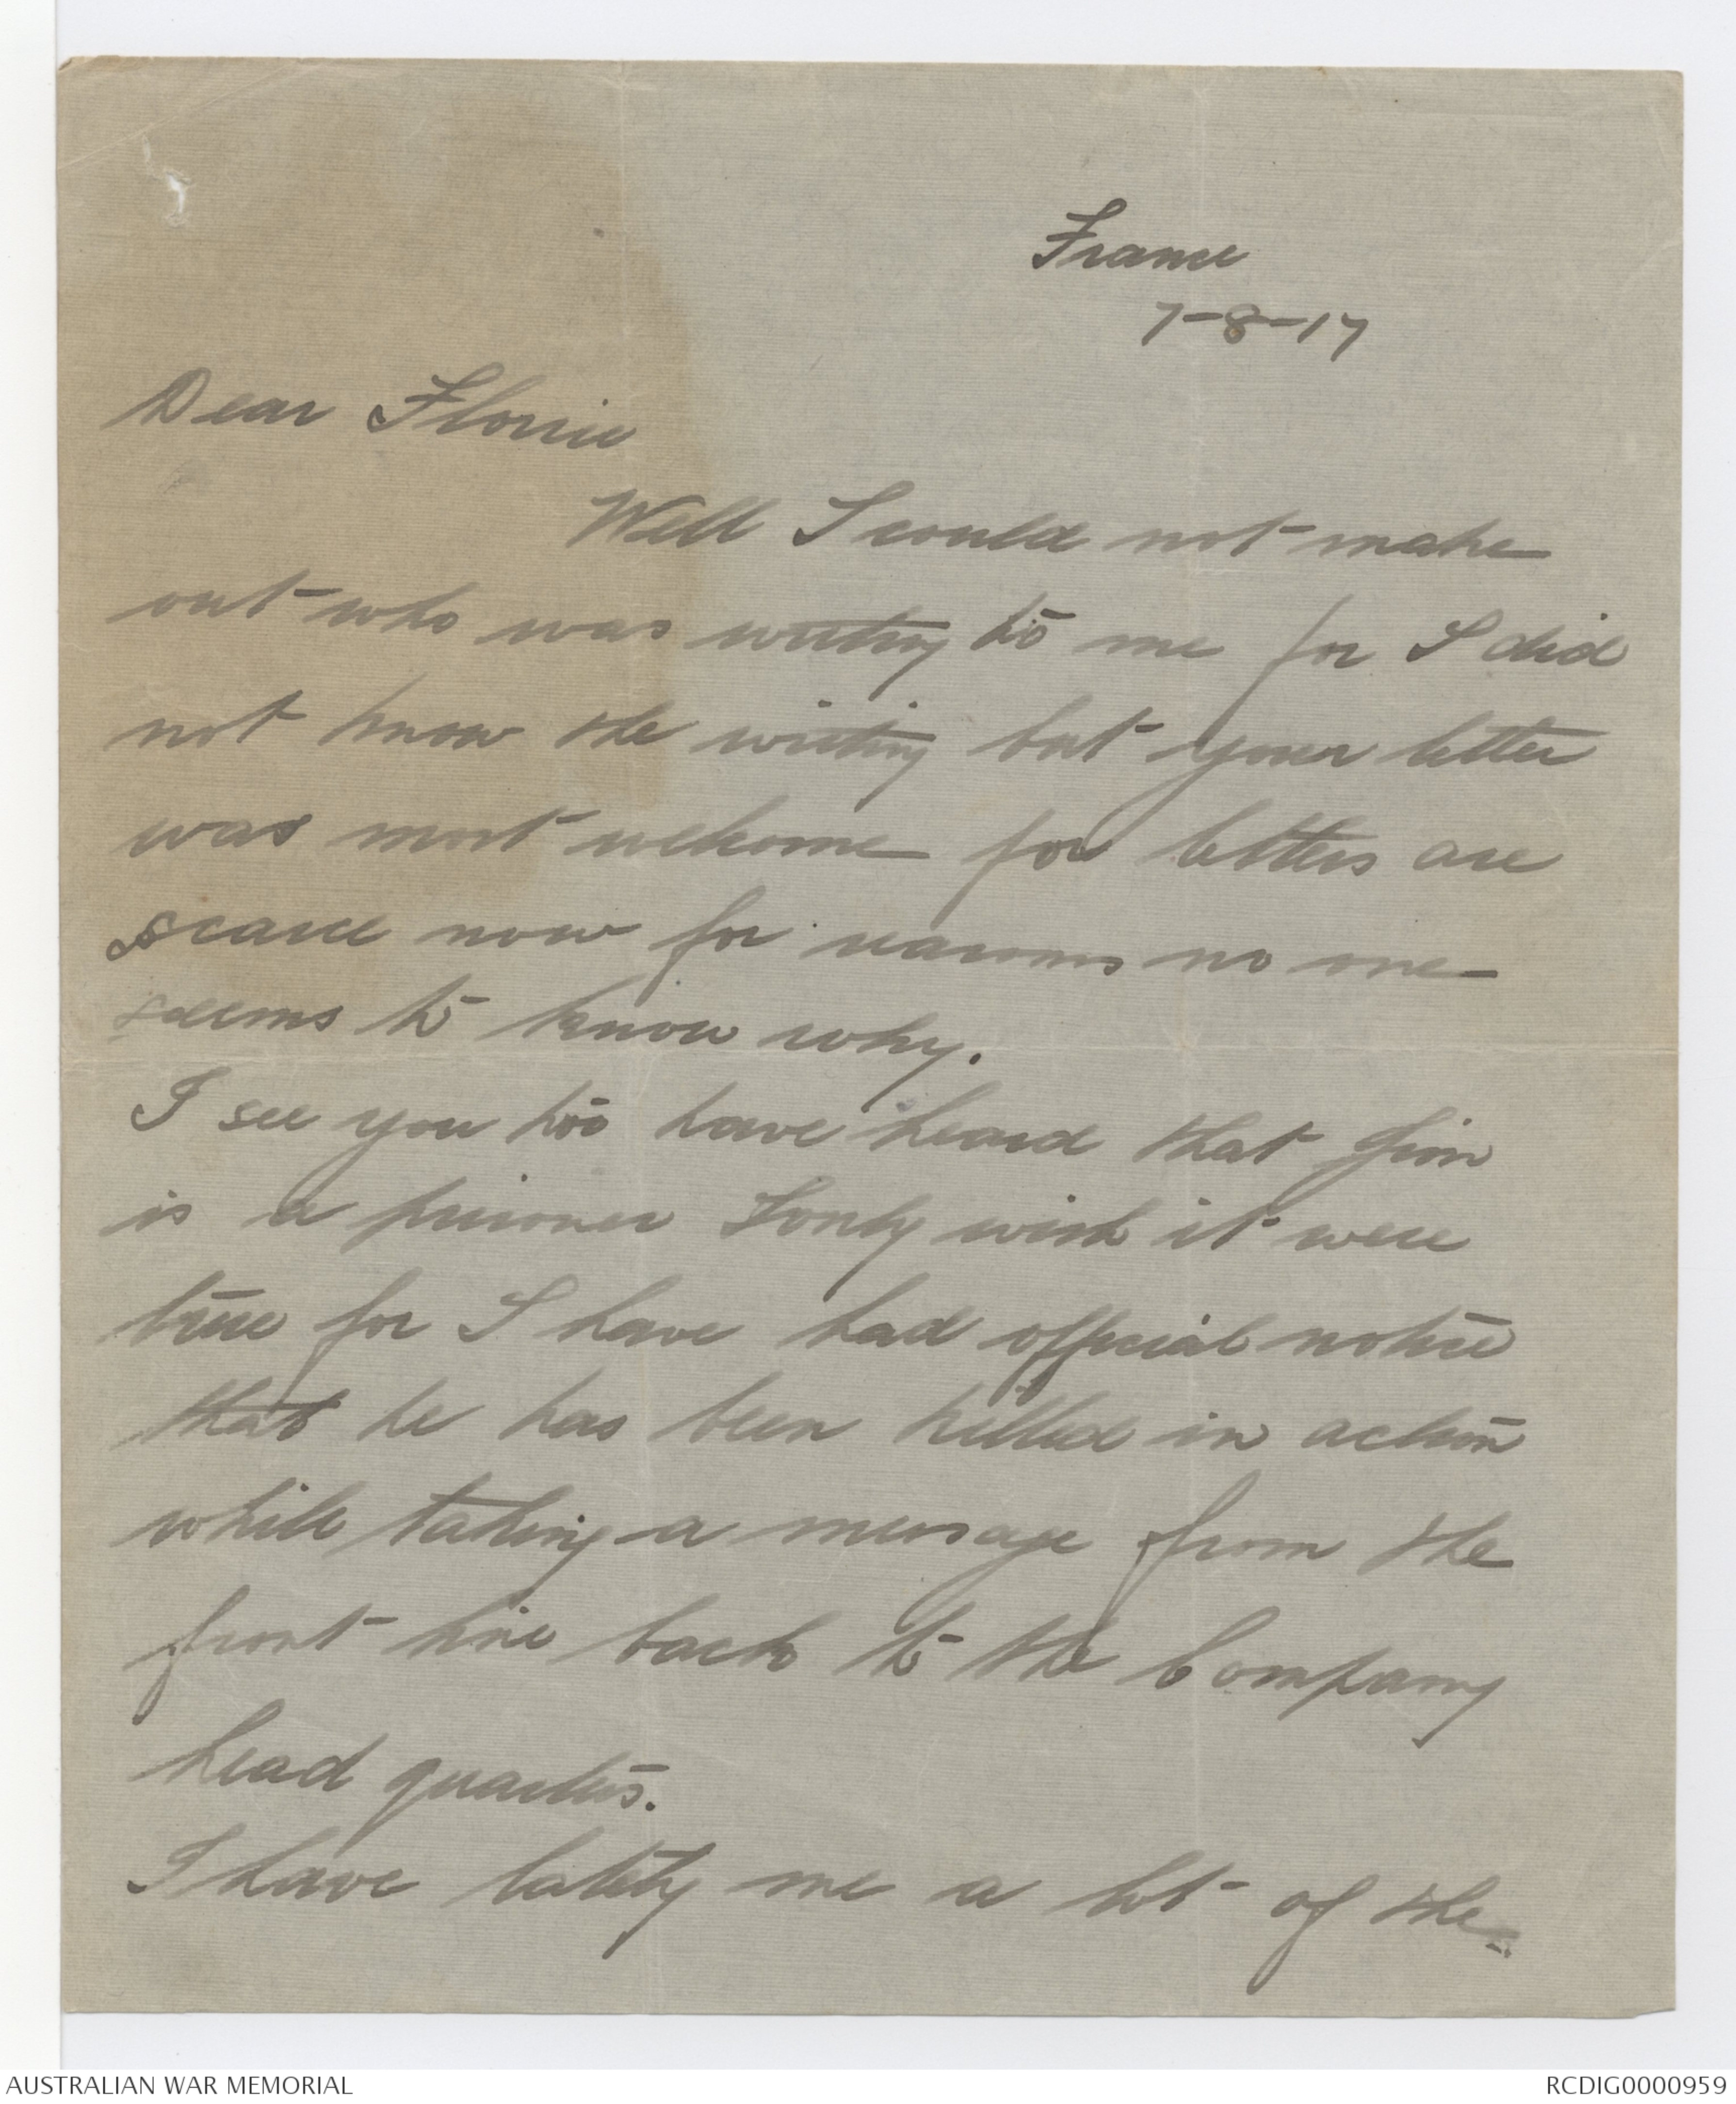 France
7-8-17
Dear Florrie
Well I could not make
out who was writing to me for I did
not know the writing but your letter
was most welcome for letters are
scarce now for reasons no one
seems to know why.
I see you too have heard that Jim
is a prisoner I only wish it were
true for I have had official notice
that he has been killed in action
while taking a message from the
front line back to the Company
head quarters.
I have lately me a lot of the
AUSTRALIAN WAR MEMORIAL
RCDIG0000959